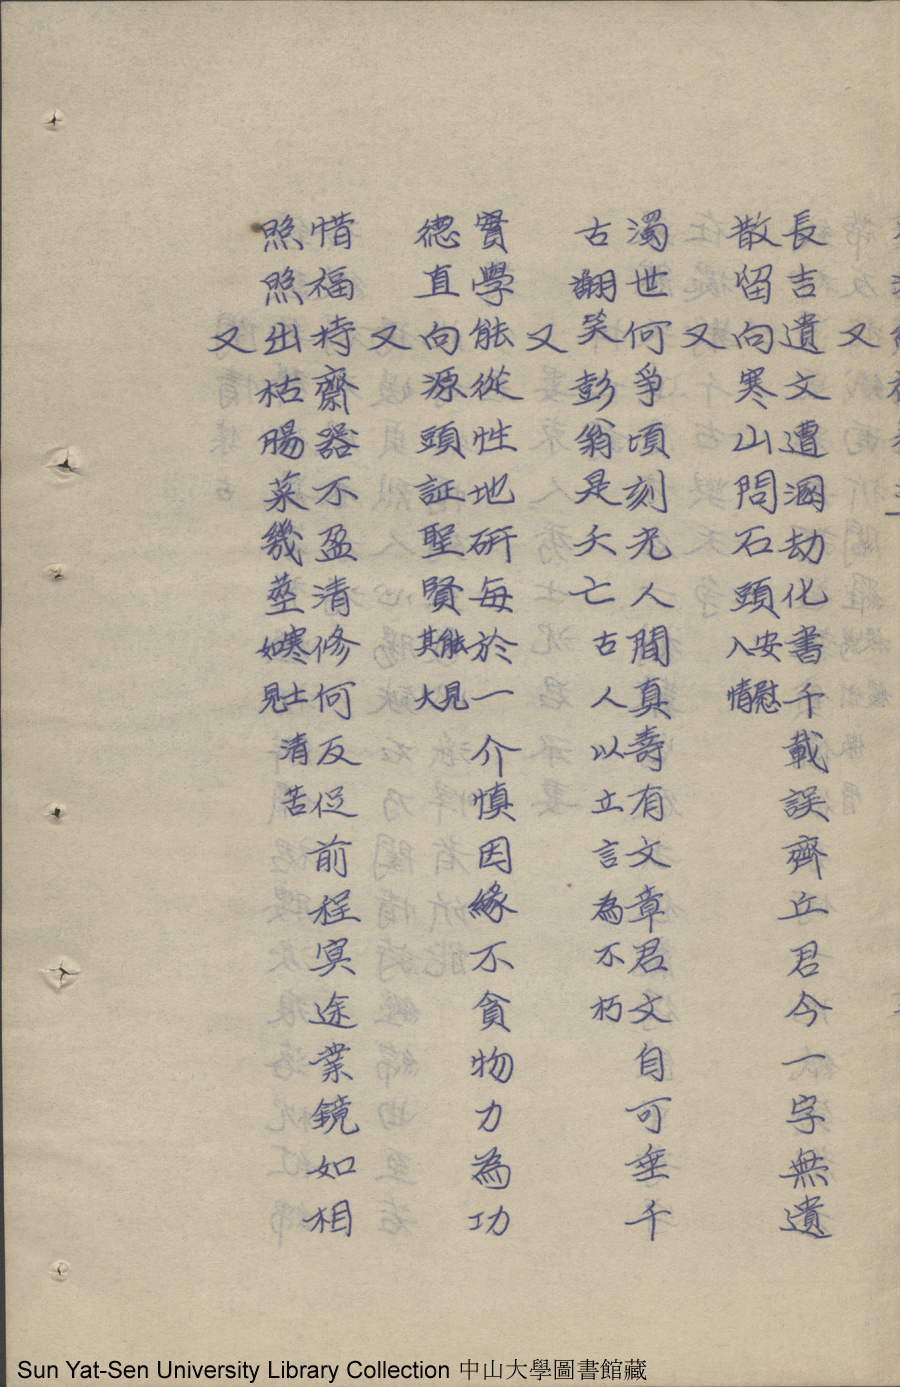 又
長吉遺文遭溷劫化書千載誤齊丘君今一字無遺
散留向寒山問石頭入安情慰
又
濁世何爭頃刻光人間真壽有文章君文自可垂千
古翻笑彭翁是夭亡古人以立言為不朽
又
實學能從性地研每於一介慎因緣不貪物力為功
德直向源頭証聖賢能見其大
又
惜福持齋器不盈清修何反促前程冥途業鏡如相
照照出枯腸菜幾莖寒士如見清苦
又
Sun Yat-Sen University Library Collection 中山大學圖書館藏